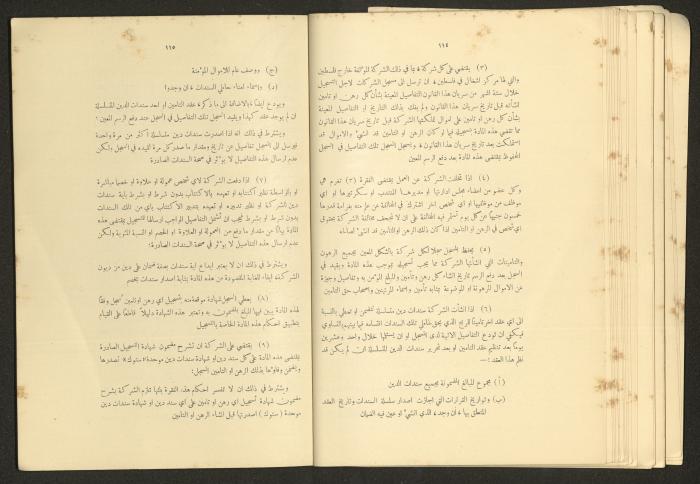 ١١٤
(٣) يقتضي على كل شركة ، بما في ذلك الشركة المؤلفة خارج فلسطين
والتي لها مركز اشغال في فلسطين ، ان ترسل الى مسجل الشركات لاجل التسجيل
خلال ستة اشهر من سريان هذا القانون التفاصيل المعينة بشأن كل رهن او تأمين
انشأته قبل تاريخ سريان هذا القانون ولم يفك بذلك التاريخ او التفاصيل المعينة
بشأن كل رهن او تأمين على اموال تملكتها الشركة قبل تاريخ سريان هذا القانون
مما تقضي هذه المادة بتسجيله فيما لو كان الرهن او التأمين قد انشىء والاموال قد
استملكت بعد تاريخ سريان هذا القانون ، وتسجل تلك التفاصيل في السجل
المحفوظ بمقتضى هذه المادة بعد دفع الرسم المعين
(٤) اذا تخلفت الشركة عن العمل بمقتضى الفقرة (٣) تغرم هي
وكل عضو من اعضاء مجلس ادارتها او مديرها المنتدب او سكرتيرها او اي
موظف من موظفيها او اي شخص آخر اشترك في المخالفة عن علم منه بغرامة قدرها
خمسون جنيهاً عن كل يوم تستمر فيه المخالفة على ان لا تجحف مخالفة الشركة بحقوق
اي شخص في الرهن او التأمين اذا كان ذلك الرهن او التأمين قد انشىء لصالحه
(٥) يحفظ المسجل سجلاً لكل شركة بالشكل المعين بجميع الرهون
والتأمينات التي انشأتها الشركة مما يجب تسجيله بموجب هذه المادة ويقيد في
السجل بعد دفع الرسم تاريخ انشاء كل رهن وتأمين والمبلغ المؤمن به وتفاصيل وجيزة
عن الاموال المرهونة او الموضوعة بمثابة تأمين واسماء المرتهنين واصحاب حق التأمين
(٦) اذا انشأت الشركة سندات دين مسلسلة تتضمن او تعطي بالنسبة
الى اي عقد آخر تأميناً للربح الذي يحق لحاملي تلك السندات المسلسلة فيما بينهم بالتساوي
فيكفي ان تودع التفاصيل الآتية لدى المسجل او ان يستلمها خلال واحد وعشرين
يوماً بعد تنظيم عقد التأمين او بعد تحرير سندات الدين المسلسلة ان لم يكن قد
نظم هذا العقد :—
(أ) مجموع المبالغ المضمونة بجميع سندات الدين
(ب) وتواريخ القرارات التي اجازت اصدار سلسلة السندات وتاريخ العقد
المتعلق بها ، ان وجد ، الذي انشىء او عين فيه الضمان
١١٥
(ج) ووصف عام للاموال المؤمنة
(د) واسماء امناء حاملي السندات ، ان وجدوا
ويودع ايضاً ، بالاضافة الى ما ذكر ، عقد التأمين او احد سندات الدين المسلسلة
ان لم يوجد عقد كهذا ويقيد المسجل تلك التفاصيل في السجل عند دفع الرسم المعين :
ويشترط في ذلك انه اذا اصدرت سندات دين مسلسلة اكثر من مرة واحدة
فيرسل الى المسجل تفاصيل عن تاريخ ومقدار ما صدر كل مرة لقيده في السجل ولكن
عدم ارسال هذه التفاصيل لا يؤثر في صحة السندات الصادرة
(٧) اذا دفعت الشركة لاي شخص عمولة او علاوة او خصماً مباشرة
او بالواسطة نظير اكتتابه او تعهده بالاكتتاب بدون شرط او بشرط باية سندات
دين الشركة او نظير تدبيره او تعهده بتدبير الاكتتاب باي من تلك السندات
بدون شرط او بشرط فيجب ان تشمل التفاصيل الواجب ارسالها للتسجيل بمقتضى هذه
المادة بياناً عن مقدار ما دفع من العمولة او العلاوة او الخصم او النسبة المئوية ولكن
عدم ارسال هذه التفاصيل لا يؤثر في صحة السندات الصادرة :
ويشترط في ذلك ان لا يعتبر ايداع اية سندات بصفة ضمان على دين من ديون
الشركة ، ايفاء للغاية المقصودة من هذه المادة بمثابة اصدار سندات بخصم
(٨) يعطي المسجل شهادة موقعة منه بتسجيل اي رهن او تأمين سجل وفقاً
لهذه المادة يبين فيها المبلغ المضمون به وتعتبر هذه الشهادة دليلاً قاطعاً على القيام
بتطبيق احكام هذه المادة الخاصة بالتسجيل
(٩) يقتضي على الشركة ان تشرح مضمون شهادة التسجيل الصادرة
بمقتضى هذه المادة على كل سند دين او شهادة سندات دين موحدة «ستوك» تصدرها
ويضمن وفاؤها بذلك الرهن او التأمين المسجل :
ويشترط في ذلك ان لا تفسر احكام هذه الفقرة بانها تلزم الشركة بشرح
مضمون شهادة تسجيل اي رهن او تأمين على اي سند دين او شهادة سندات دين
موحدة ( ستوك ) اصدرتها قبل انشاء الرهن او التأمين